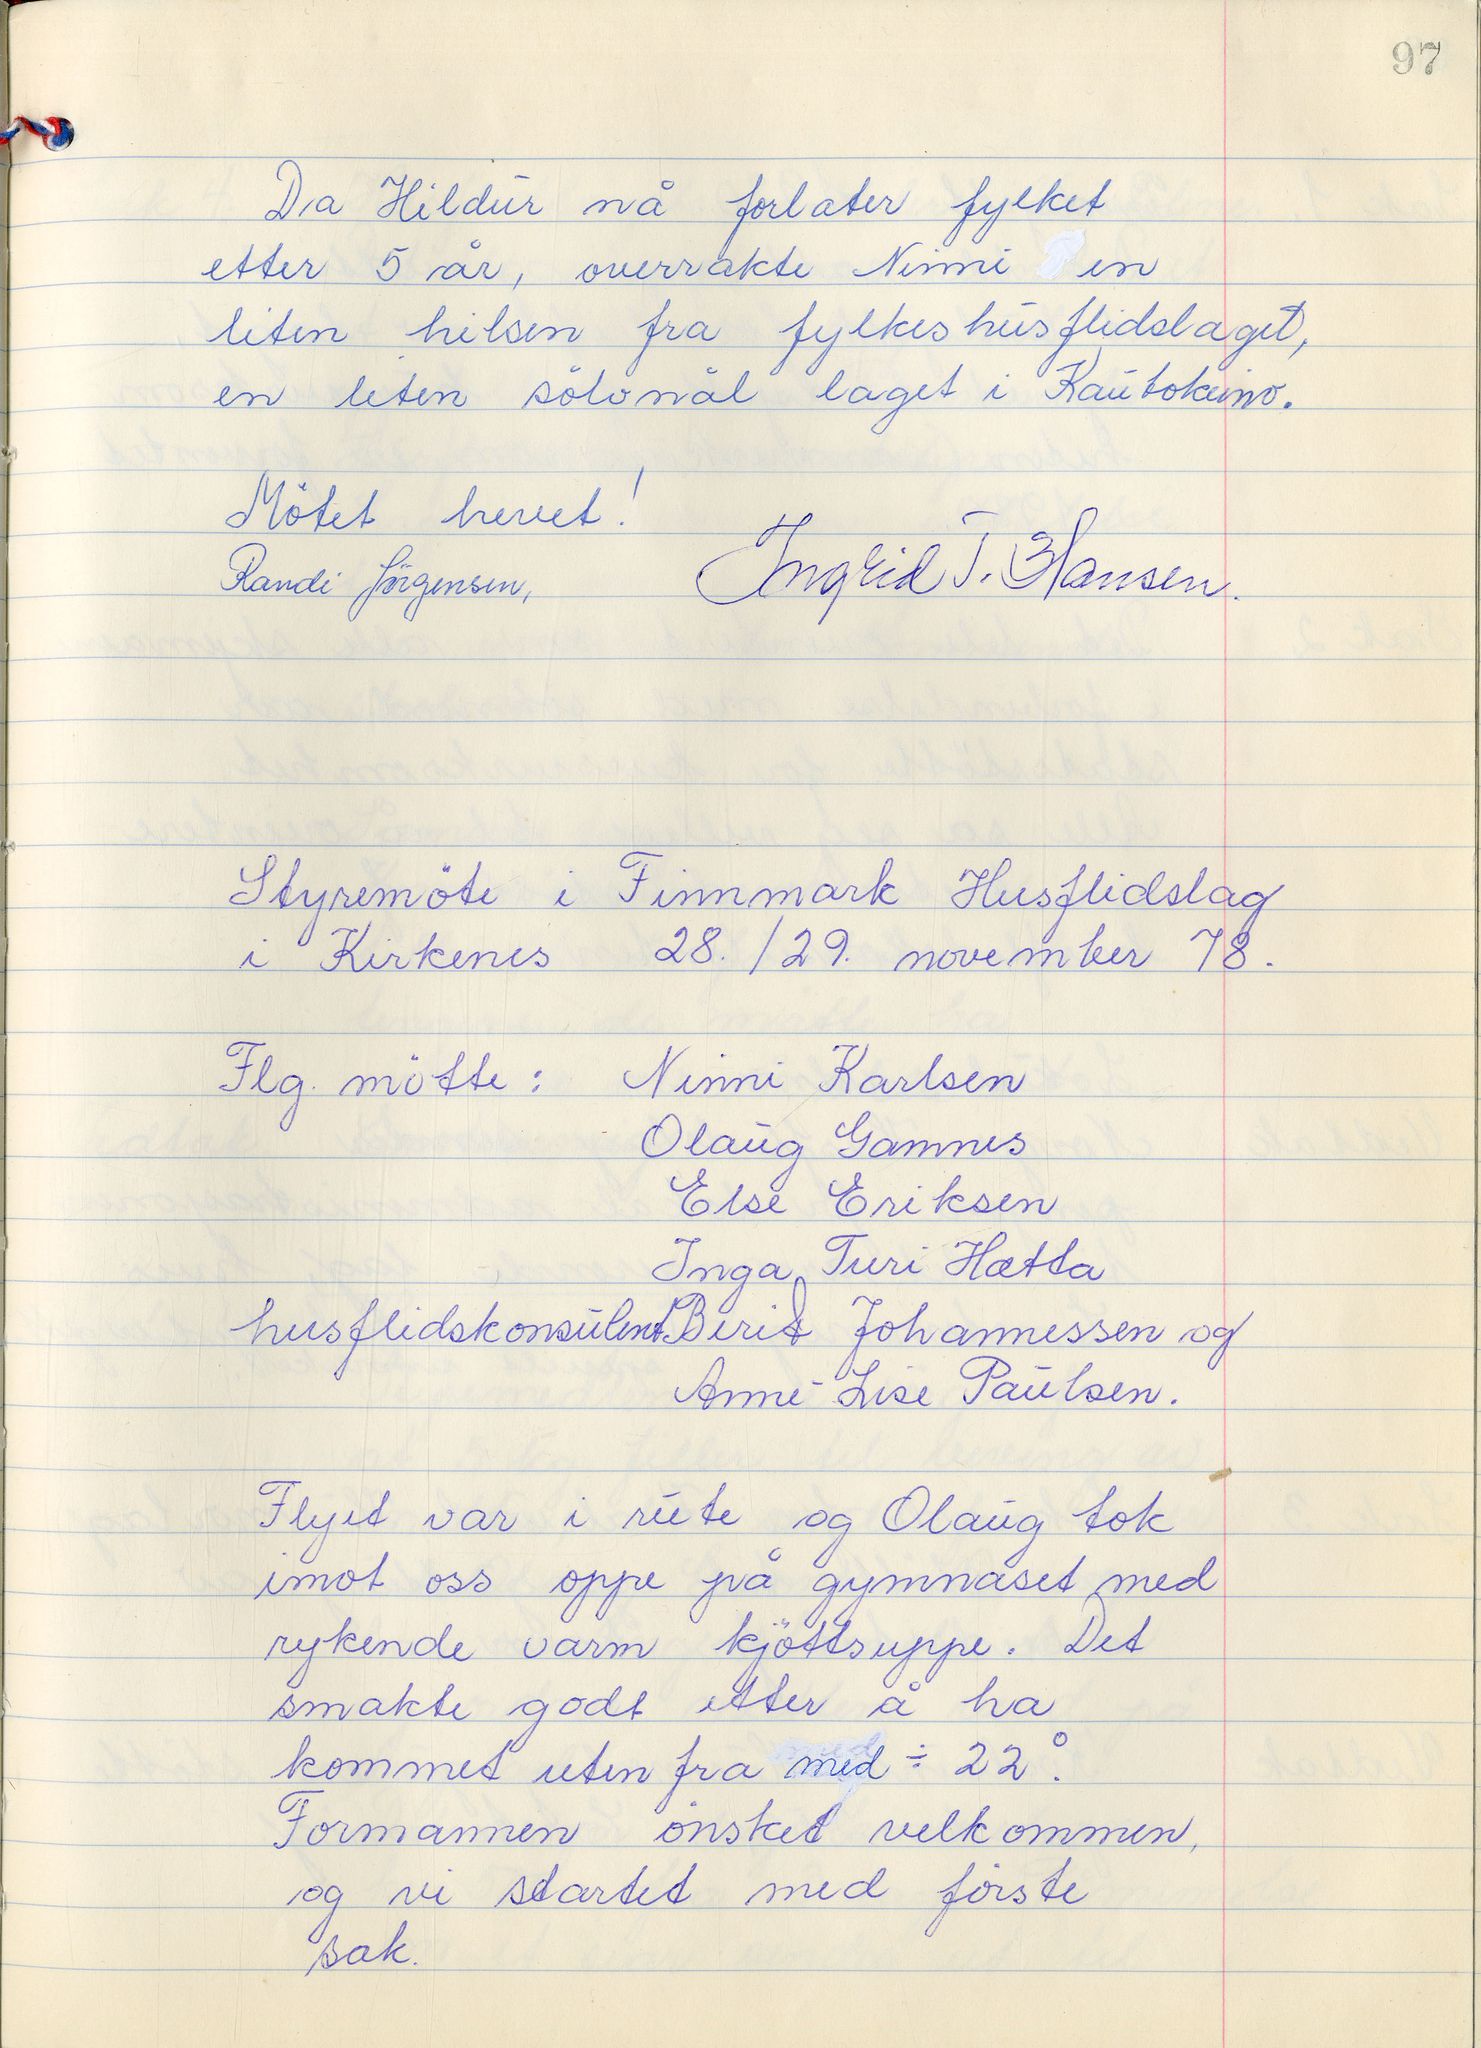 97
Da Hildur nå forlater fylket
etter 5 år, overrakte Ninni en
liten hilsen fra fylkeshusflidslaget,
en liten sölvnål laget i Kautokeino.
Mötet hevet!
Randi Jörgensen,
Ingrid T. Hansen.
Styremöte i Finnmark Husflidslag
i Kirkenes 28./29. november 78.
Flg. mötte: Ninni Karlsen
Olaug Gamnes
Else Eriksen
Inga Turi Hætta
husflidskonsulent Berit Johannessen og
Anne-Lise Paulsen.
Flyet var i rute og Olaug tok
imot oss oppe på gymnaset med
rykende varm kjöttsuppe. Det
smakte godt etter å ha
kommet uten fra med ÷ 22°.
Formannen önsket velkommen,
og vi startet med förste
sak.